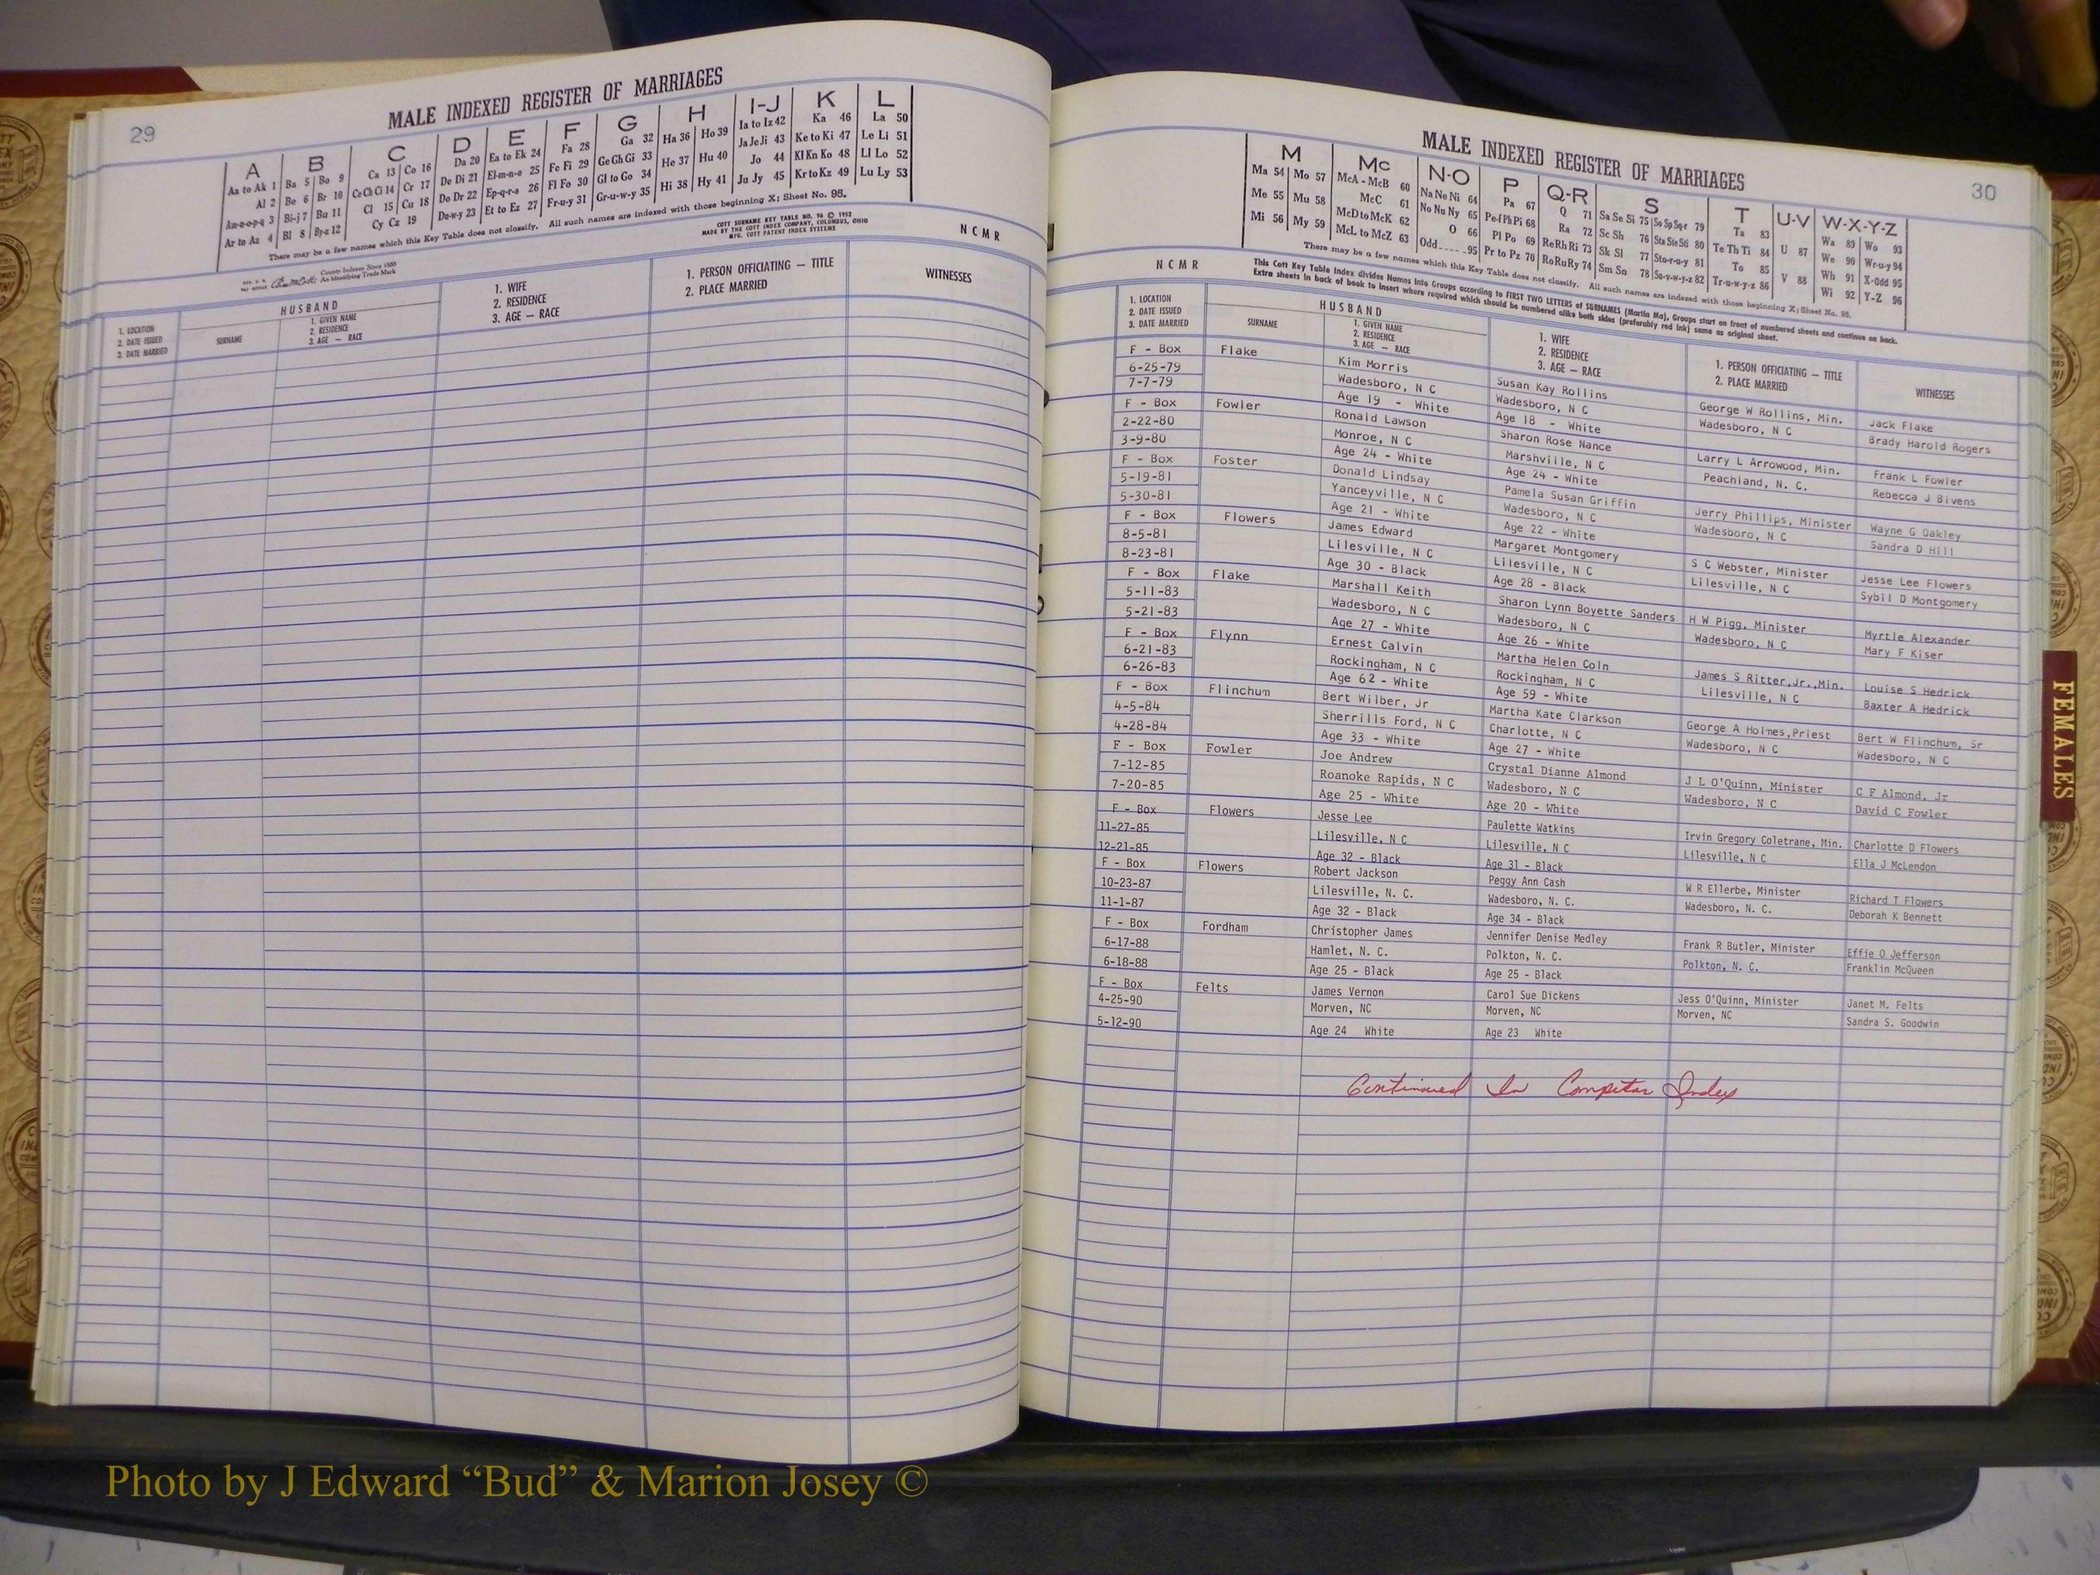 29
MALE INDEXED REGISTER OF MARRIAGES
A B C D E F G H I-J K L
Aa to Ak 1 Ba 5 Bo 9 Ca 13 Co 16 Da 20 Ea to Ek 24 Fa 28 Ga 32 Ha 36 Ho 39 Ia to Iz 42 Ka 46 La 50
Al 2 Be 6 Br 10 Ce Ch Ci 14 Cr 17 De Di 21 El-m-n-o 25 Fe Fi 29 Ge Gh Gi 33 He 37 Hu 40 Ja Je Ji 43 Ke to Ki 47 Le Li 51
Am-n-o-p-q 3 Bi-j 7 Bu 11 Cl 15 Cu 18 Do Dr 22 Ep-q-r-s 26 Fl Fo 30 Gl to Go 34 Hi 38 Hy 41 Jo 44 Kl Kn Ko 48 Ll Lo 52
Ar to Az 4 Bl 8 By-z 12 Cy Cz 19 Du-w-y 23 Et to Ez 27 Fr-u-y 31 Gr-u-w-y 35 Ju Jy 45 Kr to Kz 49 Lu Ly 53
There may be a few names which this Key Table does not classify. All such names are indexed with those beginning X; Sheet No. 95.
COTT SURNAME KEY TABLE NO. 96 © 1952
MADE BY THE COTT INDEX COMPANY, COLUMBUS, OHIO
MFG. COTT PATENT INDEX SYSTEMS
N C M R
County Indexes Since 1888
An Identifying Trade Mark
HUSBAND
1. LOCATION
2. DATE ISSUED
3. DATE MARRIED
SURNAME
1. GIVEN NAME
2. RESIDENCE
3. AGE — RACE
1. WIFE
2. RESIDENCE
3. AGE — RACE
1. PERSON OFFICIATING — TITLE
2. PLACE MARRIED
WITNESSES
MALE INDEXED REGISTER OF MARRIAGES
30
M Mc N-O P Q-R S T U-V W-X-Y-Z
Ma 54 Mo 57 McA - McB 60 Na Ne Ni 64 Pa 67 Q 71 Sa Se Si 75 So Sp Sq-r 79 Ta 83 U 87 Wa 89 Wo 93
Me 55 Mu 58 McC 61 No Nu Ny 65 Pe-f Ph Pi 68 Ra 72 Sc Sh 76 Sta Ste Sti 80 Te Th Ti 84 V 88 We 90 Wr-u-y 94
Mi 56 My 59 McD to McK 62 O 66 Pl Po 69 Re Rh Ri 73 Sk Sl 77 Sto-r-u-y 81 To 85 Wh 91 X-Odd 95
McL to McZ 63 Odd 95 Pr to Pz 70 Ro Ru Ry 74 Sm Sn 78 Su-v-w-y-z 82 Tr-u-w-y-z 86 Wi 92 Y-Z 96
There may be a few names which this Key Table does not classify. All such names are indexed with those beginning X; Sheet No. 95.
N C M R
This Cott Key Table Index divides Names into Groups according to FIRST TWO LETTERS of SURNAMES (Martin Ma), Groups start on front of numbered sheets and continue on back.
Extra sheets in back of book to insert where required which should be numbered alike both sides (preferably red ink) same as original sheet.
HUSBAND
1. LOCATION
2. DATE ISSUED
3. DATE MARRIED
SURNAME
1. GIVEN NAME
2. RESIDENCE
3. AGE — RACE
1. WIFE
2. RESIDENCE
3. AGE — RACE
1. PERSON OFFICIATING — TITLE
2. PLACE MARRIED
WITNESSES
F - Box Flake Kim Morris Susan Kay Rollins George W Rollins, Min. Jack Flake
6-25-79 Wadesboro, N C Wadesboro, N C Wadesboro, N C Brady Harold Rogers
7-7-79 Age 19 - White Age 18 - White
F - Box Fowler Ronald Lawson Sharon Rose Nance Larry L Arrowood, Min. Frank L Fowler
2-22-80 Monroe, N C Marshville, N C Peachland, N. C. Rebecca J Bivens
3-9-80 Age 24 - White Age 24 - White
F - Box Foster Donald Lindsay Pamela Susan Griffin Jerry Phillips, Minister Wayne G Oakley
5-19-81 Yanceyville, N C Wadesboro, N C Wadesboro, N C Sandra D Hill
5-30-81 Age 21 - White Age 22 - White
F - Box Flowers James Edward Margaret Montgomery S C Webster, Minister Jesse Lee Flowers
8-5-81 Lilesville, N C Lilesville, N C Lilesville, N C Sybil D Montgomery
8-23-81 Age 30 - Black Age 28 - Black
F - Box Flake Marshall Keith Sharon Lynn Boyette Sanders H W Pigg, Minister Myrtle Alexander
5-11-83 Wadesboro, N C Wadesboro, N C Wadesboro, N C Mary F Kiser
5-21-83 Age 27 - White Age 26 - White
F - Box Flynn Ernest Calvin Martha Helen Coln James S Ritter,Jr.,Min. Louise S Hedrick
6-21-83 Rockingham, N C Rockingham, N C Lilesville, N C Baxter A Hedrick
6-26-83 Age 62 - White Age 59 - White
F - Box Flinchum Bert Wilber, Jr Martha Kate Clarkson George A Holmes,Priest Bert W Flinchum, Sr
4-5-84 Sherrills Ford, N C Charlotte, N C Wadesboro, N C Wadesboro, N C
4-28-84 Age 33 - White Age 27 - White
F - Box Fowler Joe Andrew Crystal Dianne Almond J L O'Quinn, Minister C F Almond, Jr
7-12-85 Roanoke Rapids, N C Wadesboro, N C Wadesboro, N C David C Fowler
7-20-85 Age 25 - White Age 20 - White
F - Box Flowers Jesse Lee Paulette Watkins Irvin Gregory Coletrane, Min. Charlotte D Flowers
11-27-85 Lilesville, N C Lilesville, N C Lilesville, N C Ella J McLendon
12-21-85 Age 32 - Black Age 31 - Black
F - Box Flowers Robert Jackson Peggy Ann Cash W R Ellerbe, Minister Richard T Flowers
10-23-87 Lilesville, N. C. Wadesboro, N. C. Wadesboro, N. C. Deborah K Bennett
11-1-87 Age 32 - Black Age 34 - Black
F - Box Fordham Christopher James Jennifer Denise Medley Frank R Butler, Minister Effie O Jefferson
6-17-88 Hamlet, N. C. Polkton, N. C. Polkton, N. C. Franklin McQueen
6-18-88 Age 25 - Black Age 25 - Black
F - Box Felts James Vernon Carol Sue Dickens Jess O'Quinn, Minister Janet M. Felts
4-25-90 Morven, NC Morven, NC Morven, NC Sandra S. Goodwin
5-12-90 Age 24 White Age 23 White
Continued In Computer Index
FEMALES
Photo by J Edward “Bud” & Marion Josey ©